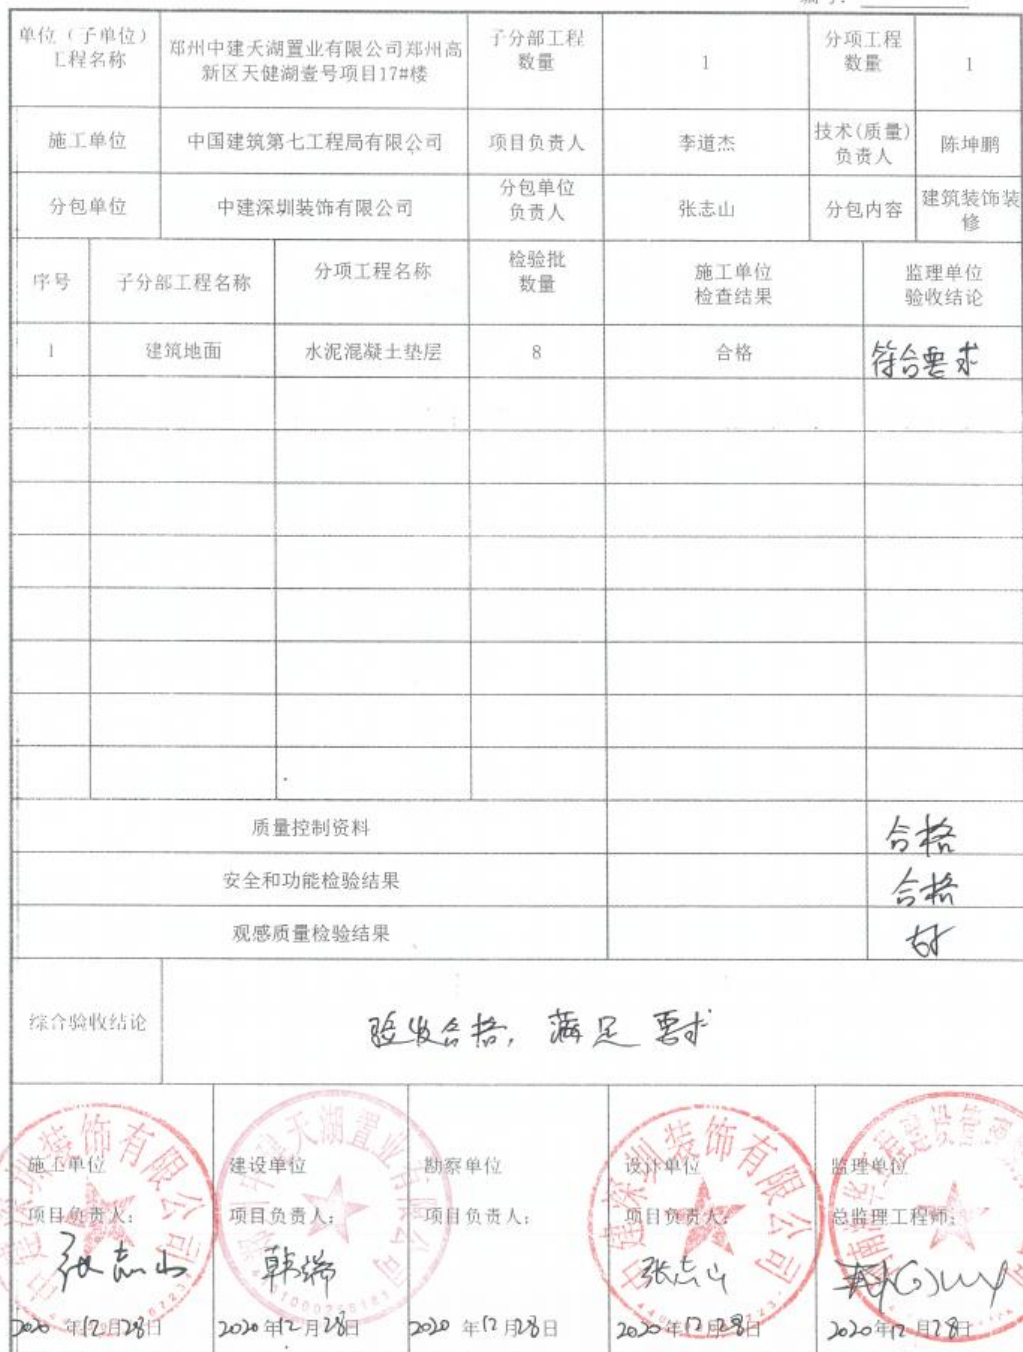 编号：
单位（子单位）
工程名称
郑州中建天湖置业有限公司郑州高
新区天健湖壹号项目17#楼
子分部工程
数量
1
分项工程
数量
1
施工单位
中国建筑第七工程局有限公司
项目负责人
李道杰
技术(质量)
负责人
陈坤鹏
分包单位
中建深圳装饰有限公司
分包单位
负责人
张志山
分包内容
建筑装饰装
修
序号
子分部工程名称
分项工程名称
检验批
数量
施工单位
检查结果
监理单位
验收结论
1
建筑地面
水泥混凝土垫层
8
合格
符合要求
质量控制资料
合格
安全和功能检验结果
合格
观感质量检验结果
好
综合验收结论
验收合格，满足要求
施工单位
项目负责人：
张志山
2020年12月28日
建设单位
项目负责人：
韩端
2020年12月28日
勘察单位
项目负责人：
2020年12月28日
设计单位
项目负责人：
张志山
2020年12月28日
监理单位
总监理工程师：
2020年12月28日
中建深圳装饰有限公司
天湖置业有限公司
中建深圳装饰有限公司